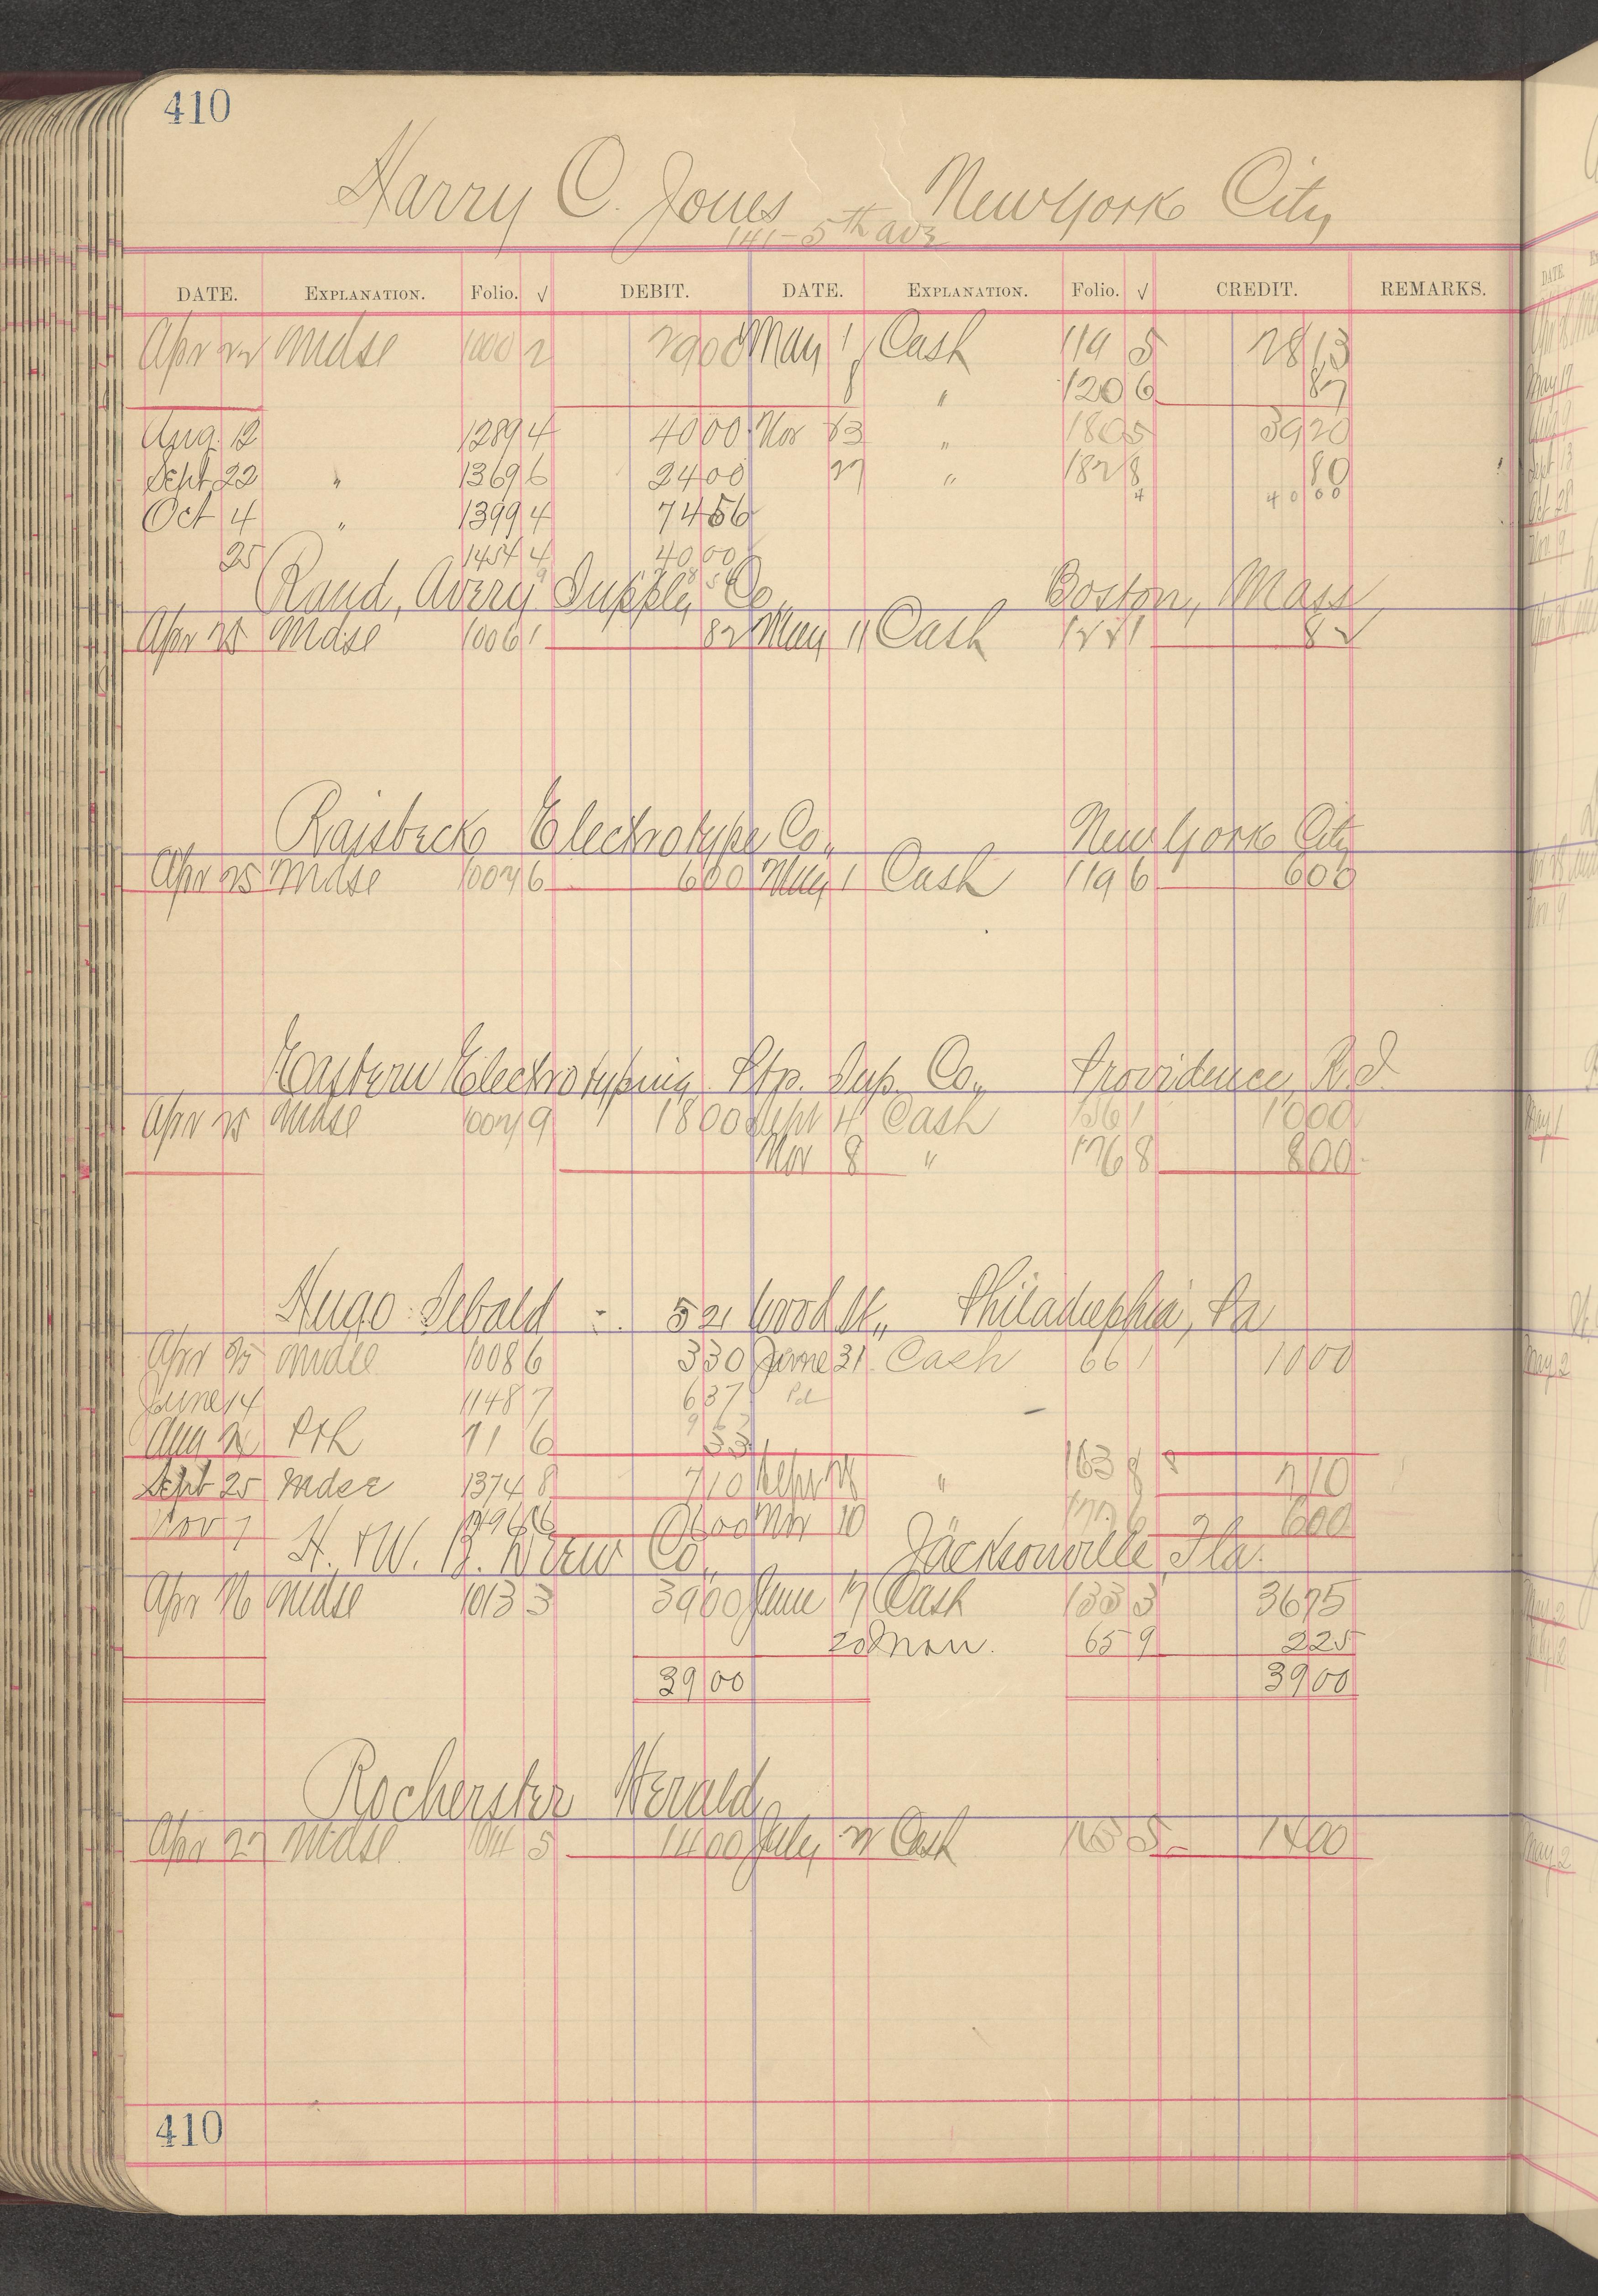 410
Harry C. Jones New York City
141-5th ave
DATE. EXPLANATION. Folio. √ DEBIT. DATE. EXPLANATION. Folio. √ CREDIT. REMARKS.
Apr 22 Mdse 1000 2 2900 May 1 Cash 119 5 2813
8 " 120 6 87
Aug. 12 1289 4 4000 Nov 23 " 180 5 3920
Sept 22 " 1369 6 2400 27 " 182 8 80
4 4000
Oct 4 " 1399 4 7456
25 1454 4 4000
Rand, Avery Supply Co Boston, Mass
Apr 25 Mdse 1006 1 82 May 11 Cash 122 1 82
Raisbeck Electrotype Co., New York City
Apr 25 Mdse 1007 6 600 May 1 Cash 119 6 600
Eastern Electrotyping Stp. Sup. Co., Providence, R.I.
Apr 25 Mdse 1007 9 1800 Sept 4 Cash 156 1 1000
Nov 8 " 176 8 800
Hugo Sebald -. 521 Wood St., Philadelphia, Pa
Apr 25 Mdse 1008 6 330 June 21 Cash 66 1 1000
June 14 1148 7 637 Pd
Aug 2 Pth 71 6 33
Sept 25 Mdse 1374 8 710 Sept " 163 8 710
Nov 7 600 Nov 10 600
H. & W. B. Drew Co., Jacksonville, Fla.
Apr 26 Mdse 1013 3 3900 June 17 Cash 133 3 3675
20 Mdse. 65 9 225
3900 3900
Rocherster Herald
Apr 27 Mdse. 1014 5 1400 July 22 Cash 1400
410